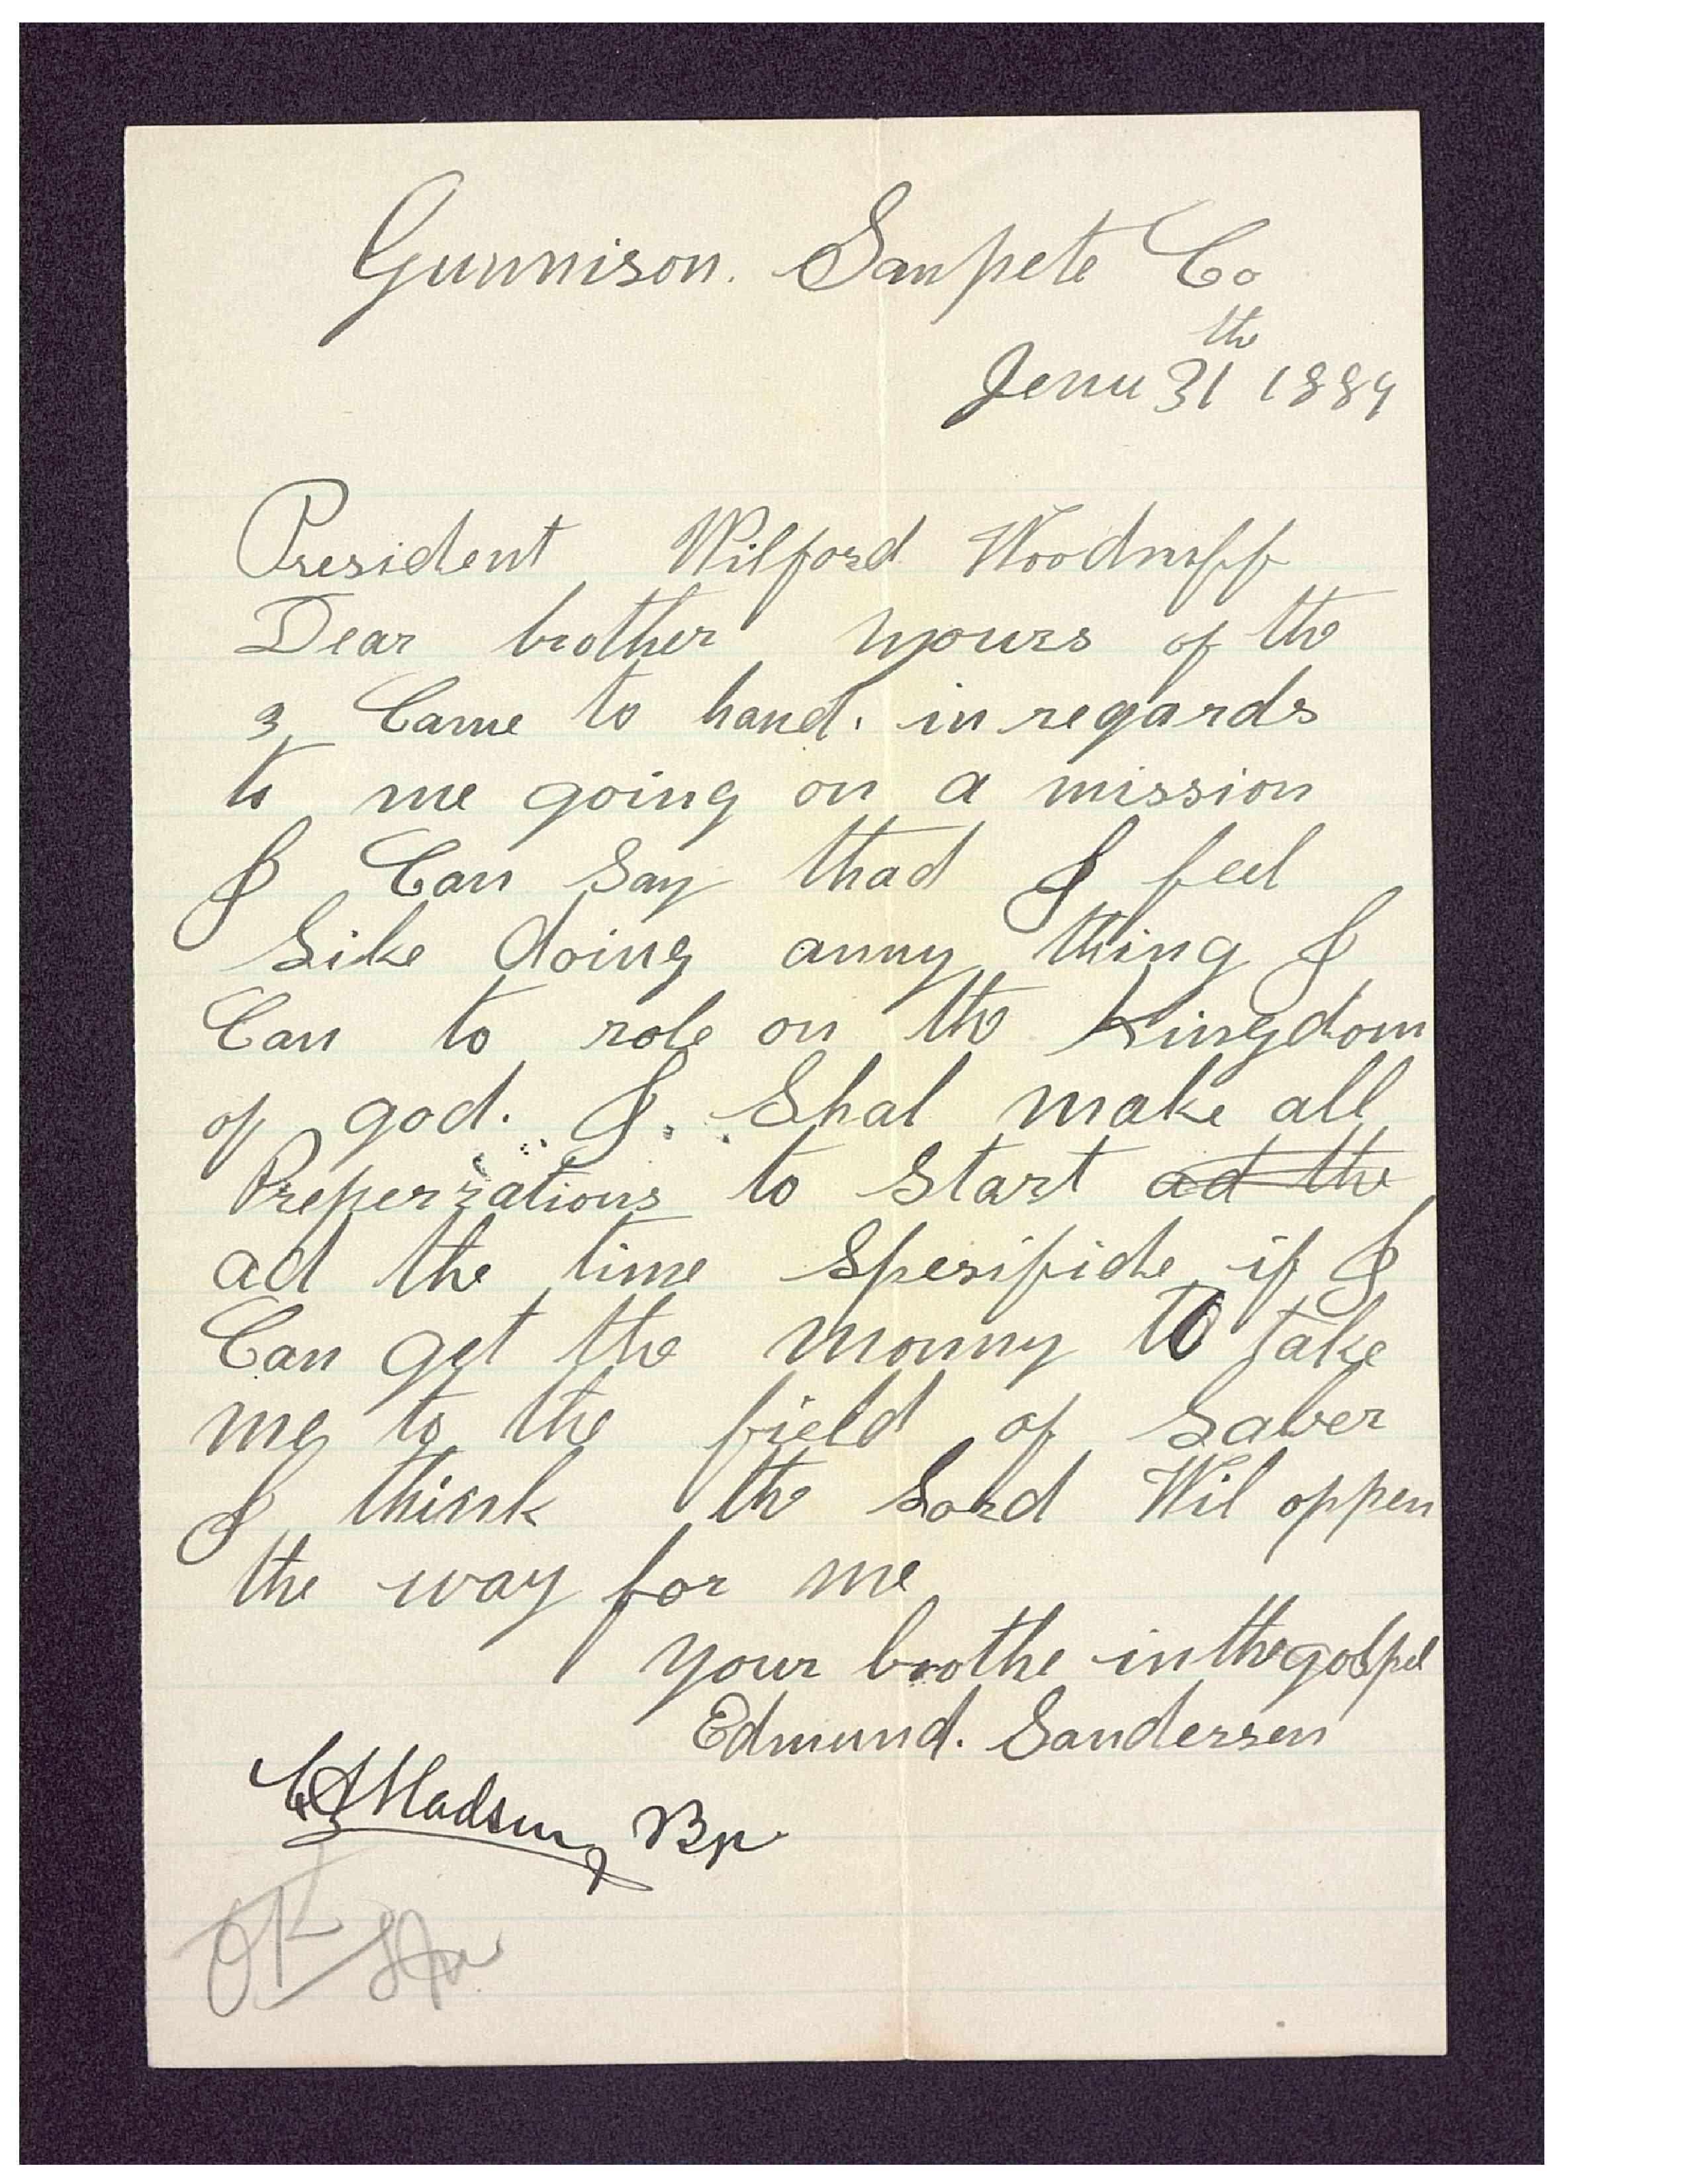 Gunnison. Sanpete Co
th
Jenu 31 1889
President Wilford Woodruff
Dear brother yours of the
3 Came to hand. in regards
to me going on a mission
I Can Say thad I feel
Like doing anny thing I
Can to role on the Kingdom
of god. I. Shal make all
Preperrations to Start ad the
ad the time Spesifide if I
Can get the monny to take
me to the field of Laber
I think the Lord Wil oppen
the way for me
your brothe in the gospel
Edmund. Sandersen
Madsen Bp
OK